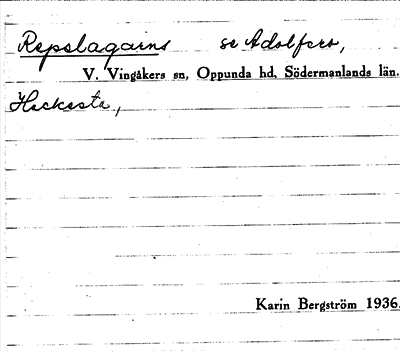 Repslagarns se Adolfero,
V. Vingåkers sn, Oppunda hd, Södermanlands län.
Heckesta,
Karin Bergström 1936.